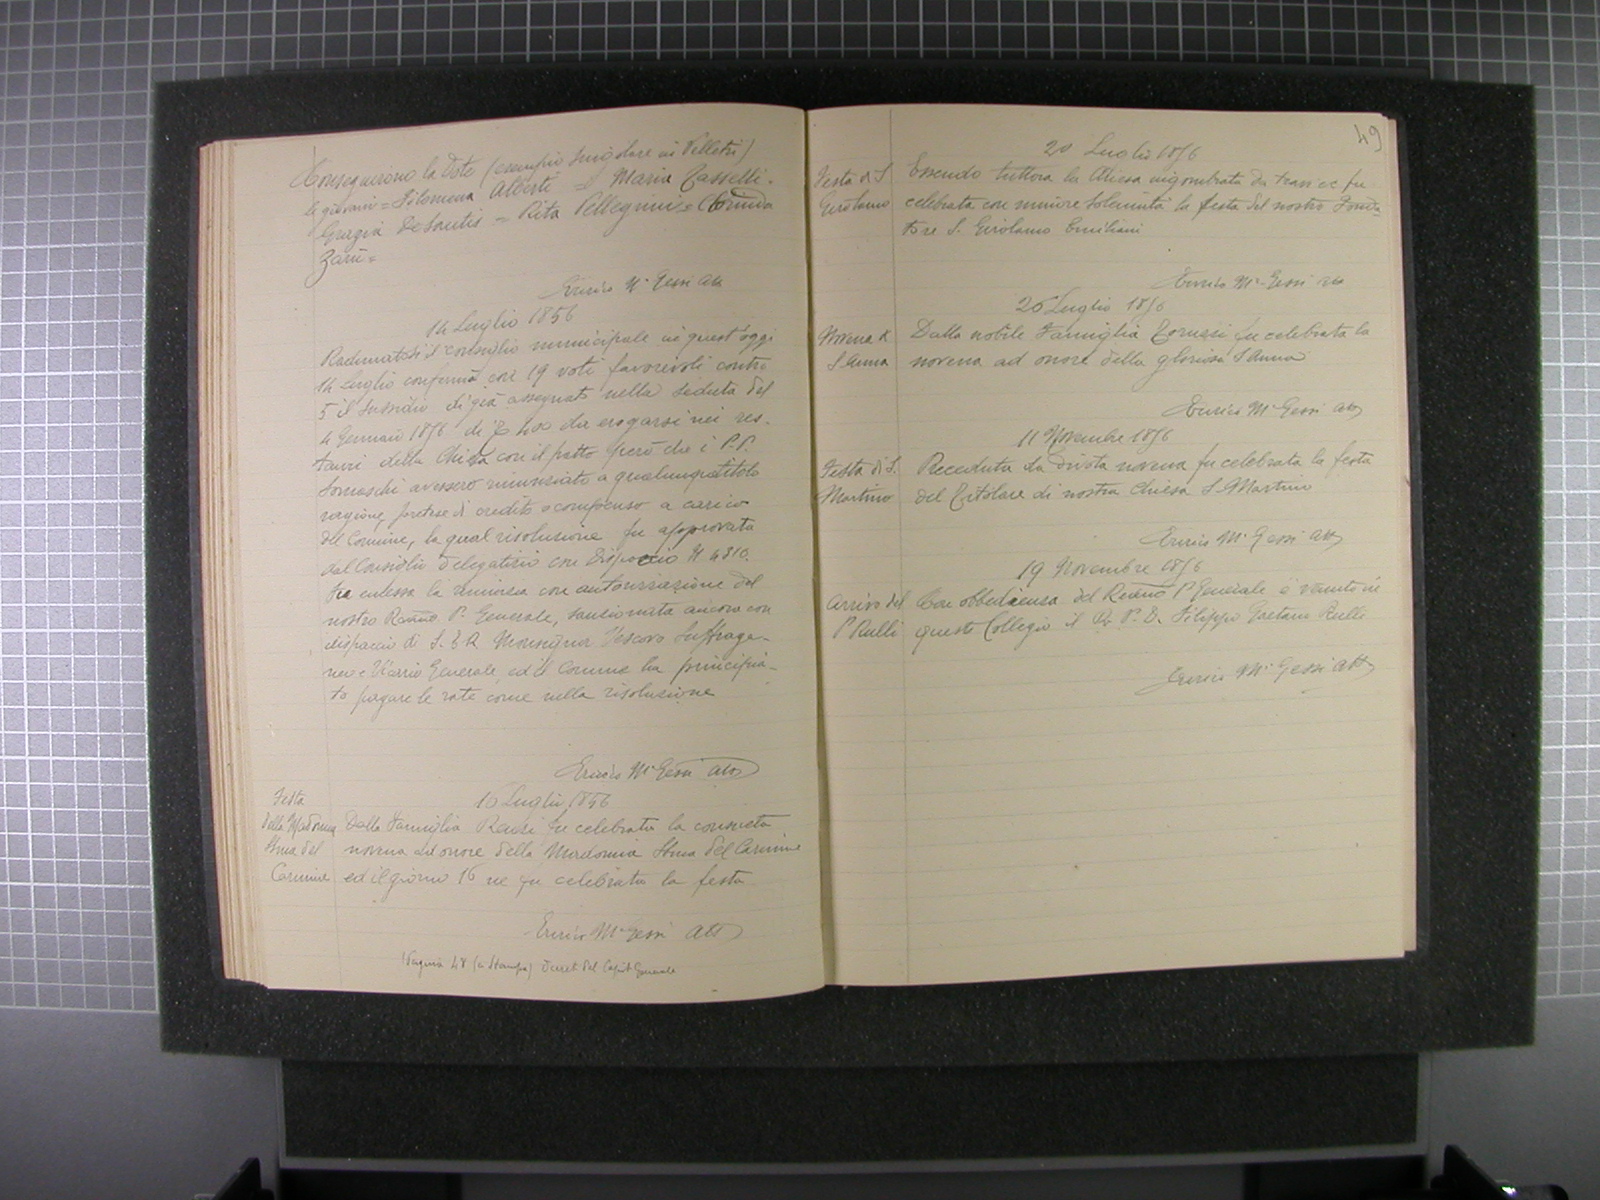 Conseguirono la dote (esempio singolare in Velletri)
le giovani = Filomena Alberti = Maria Casselli =
Grazia De Santis = Rita Pellegrini = Clorinda
Zarù =
Enrico M. Gessi att
14 Luglio 1856
Radunatosi il consiglio municipale in quest'oggi
14 Luglio confermò con 19 voti favorevoli contro
5 il sussidio di già assegnato nella seduta del
4 Gennaio 1856 di da erogarsi nei res-
tauri della Chiesa con il patto però che i P.P.
Somaschi avessero rinunziato a qualunque titolo
ragione, pretese di credito o compenso a carico
del Comune, la qual risoluzione fu approvata
dal Consiglio delegatizio con Dispaccio N 4310.
Fu emessa la rinunzia con autorizzazione del
nostro Rmo P. Generale, sanzionata ancora con
dispaccio di S. E. R Monsignor Vescovo Suffraga-
neo e Vicario Generale, ed il Comune ha principia-
to pagare le rate come nella risoluzione
Enrico M. Gessi att
16 Luglio 1856
Festa
della Madonna
Sma del
Carmine
Dalla Famiglia fu celebrata la consueta
novena ad onore della Madonna Sma del Carmine
ed il giorno 16 ne fu celebrata la festa
Enrico M. Gessi att
(Pagina 48 (a stampa) Decreti del Capit. Generale
49
20 Luglio 1856
Festa di S
Girolamo
Essendo tuttora la Chiesa ingombrata da travi ec fu
celebrata con minore solennità la festa del nostro Fonda-
tore S. Girolamo Emiliani
Enrico M. Gessi att
26 Luglio 1856
Novena di
S Anna
Dalla nobile Famiglia fu celebrata la
novena ad onore della gloriosa S Anna
Enrico M. Gessi att
11 Novembre 1856
Festa di S.
Martino
Preceduta da divota novena fu celebrata la festa
del Titolare di nostra Chiesa S. Martino
Enrico M. Gessi att
19 Novembre 1856
Arrivo del
P Rulli
Con obbedienza del Rmo P Generale è venuto in
questo Collegio il R. P. D. Filippo Gaetano Rulli
Enrico M. Gessi att